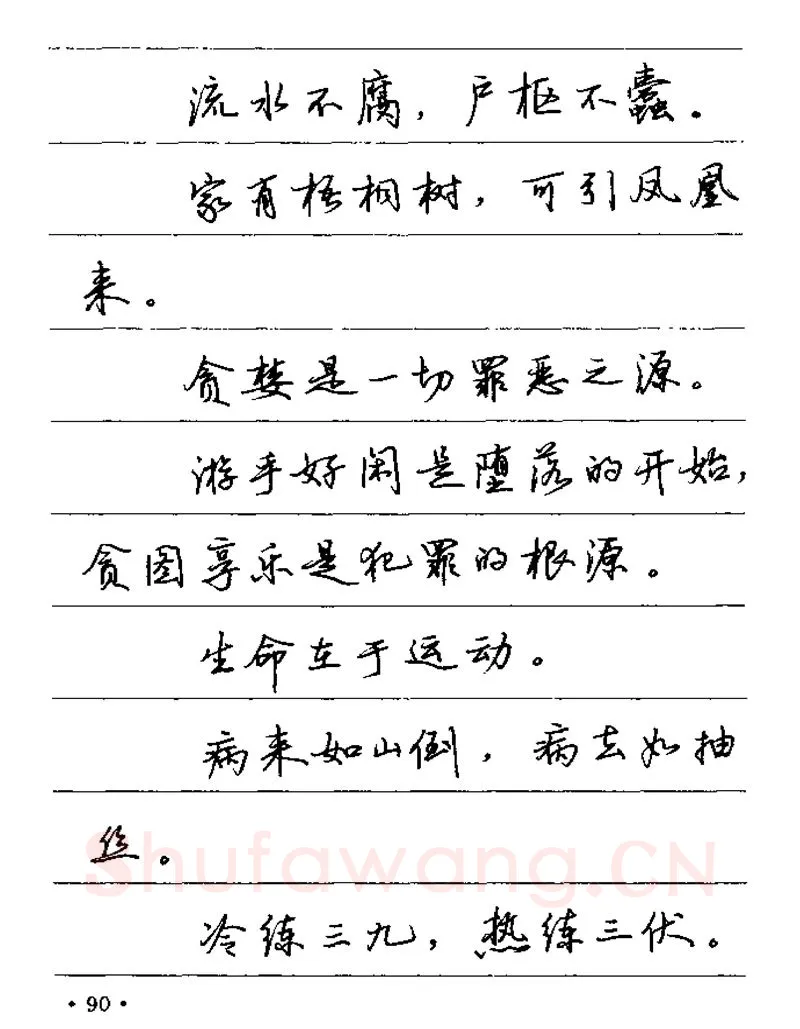 流水不腐，户枢不蠹。
家有梧桐树，可引凤凰
来。
贪婪是一切罪恶之源。
游手好闲是堕落的开始，
贪图享乐是犯罪的根源。
生命在于运动。
病来如山倒，病去如抽
丝。
Shufawang.CN
冷练三九，热练三伏。
·90·